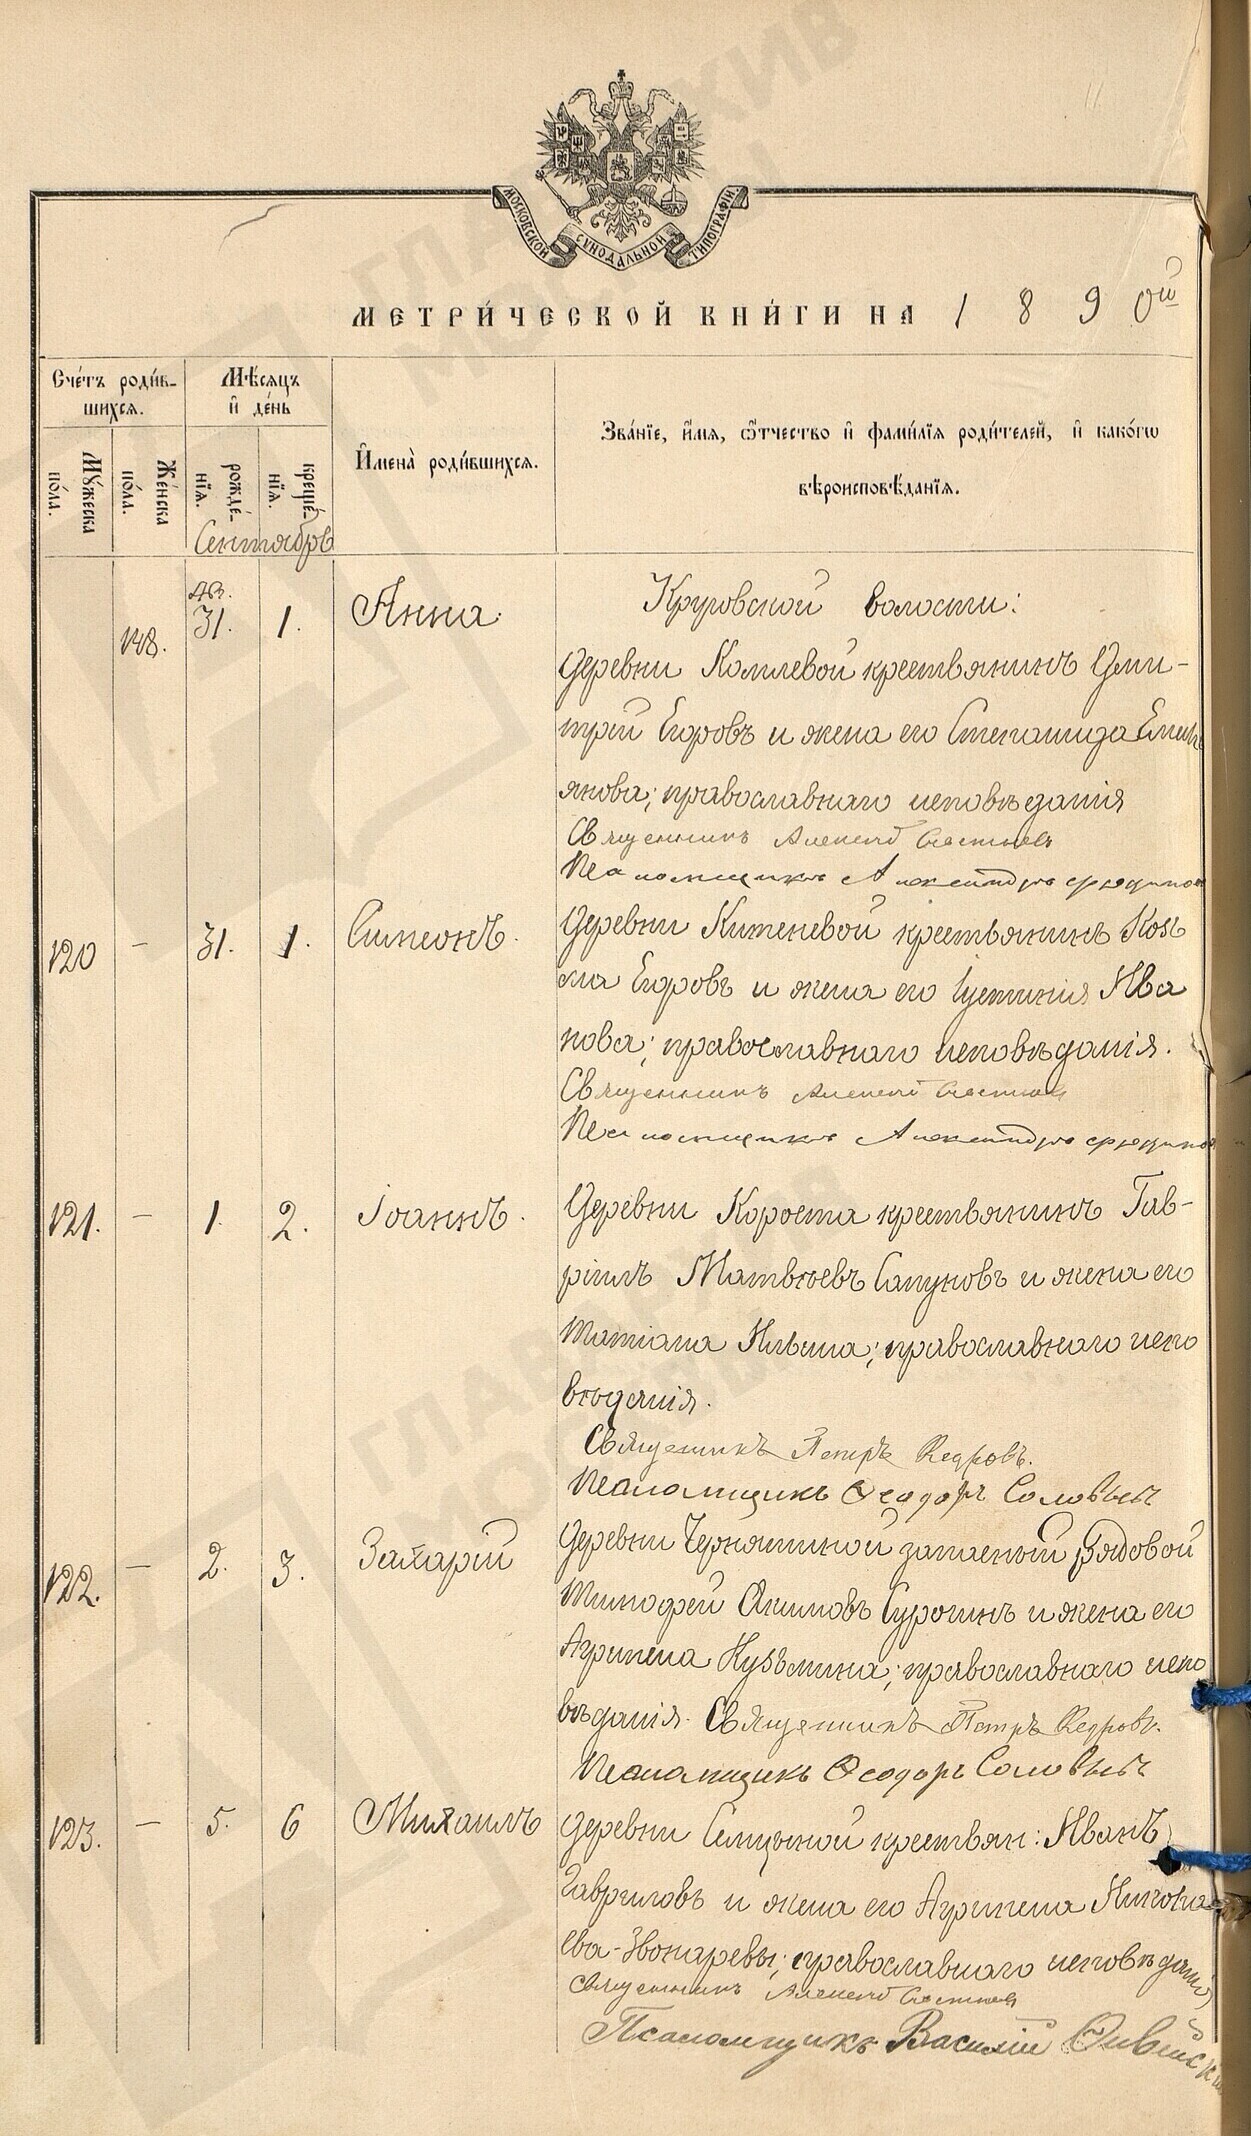 ГЛАВАРХИВ
МОСКВЫ
МОСКОВСКОЙ СѴНОДАЛЬНОЙ ТИПОГРАФІИ
МЕТРИ́ЧЕСКОЙ КНИ́ГИ НА 1890ый
Сче́тъ роди́в-
шихся.
Мѣ́сяцъ
и҆ де́нь
Мꙋ́жеска
по́ла.
Же́нска
по́ла.
рожде́-
нїѧ.
креще́-
нїѧ.
И҆мена̀ роди́вшихся.
Зва́нїе, и҆́мѧ, ѻ҆́тчество и҆ фами́лїѧ роди́телей, и҆ како́гѡ
вѣроисповѣ́данїѧ.
Сентябрь
Ав.
148. 31. 1. Анна.
Круговской волости:
Деревни крестьянинъ Дми-
трій Егоровъ и жена его Степанида
янова; православнаго исповѣданія
Священникъ Алексей
Псаломщикъ Александръ
120 – 31. 1. Симеонъ.
Деревни Китеневой крестьянинъ Козь
ма Егоровъ и жена его Іустинія Ива
нова; православнаго исповѣданія.
Священникъ Алексей
Псаломщикъ Александръ
121. – 1. 2. Іоаннъ.
Деревни Короста крестьянинъ Гав-
ріилъ Матвѣевъ Сапуновъ и жена его
Татіана Ильина; православнаго испо
вѣданія.
Священникъ Петръ Кедровъ.
Псаломщикъ Ѳеодоръ Соловьевъ
122. – 2. 3. Захарій
Деревни запасный рядовой
Тимофей Акимовъ Сурогинъ и жена его
Агрипена Кузьмина; православнаго испо
вѣданія. Священникъ Петръ Кедровъ.
Псаломщикъ Ѳеодоръ Соловьевъ
123. – 5. 6 Михаилъ
Деревни крестьян: Иванъ
Гавриловъ и жена его Агрипена Никола
ева Звонаревы; православнаго исповѣданія
Священникъ Алексей
Псаломщикъ Василій
ГЛАВАРХИВ
МОСКВЫ